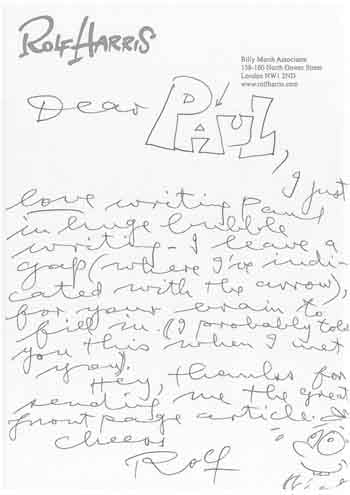 ROLF HARRIS
Billy Marsh Associates
158-160 North Gower Street
London NW1 2ND
www.rolfharris.com
Dear PAUL,
I just
love writing Paul
in huge bubble
writing - I leave a
gap (where I've indi-
cated with the arrow),
for your brain to
fill in. (I probably told
you this when I met
you).
Hey, thanks for
sending me the great
front page article.
Cheers
Rolf